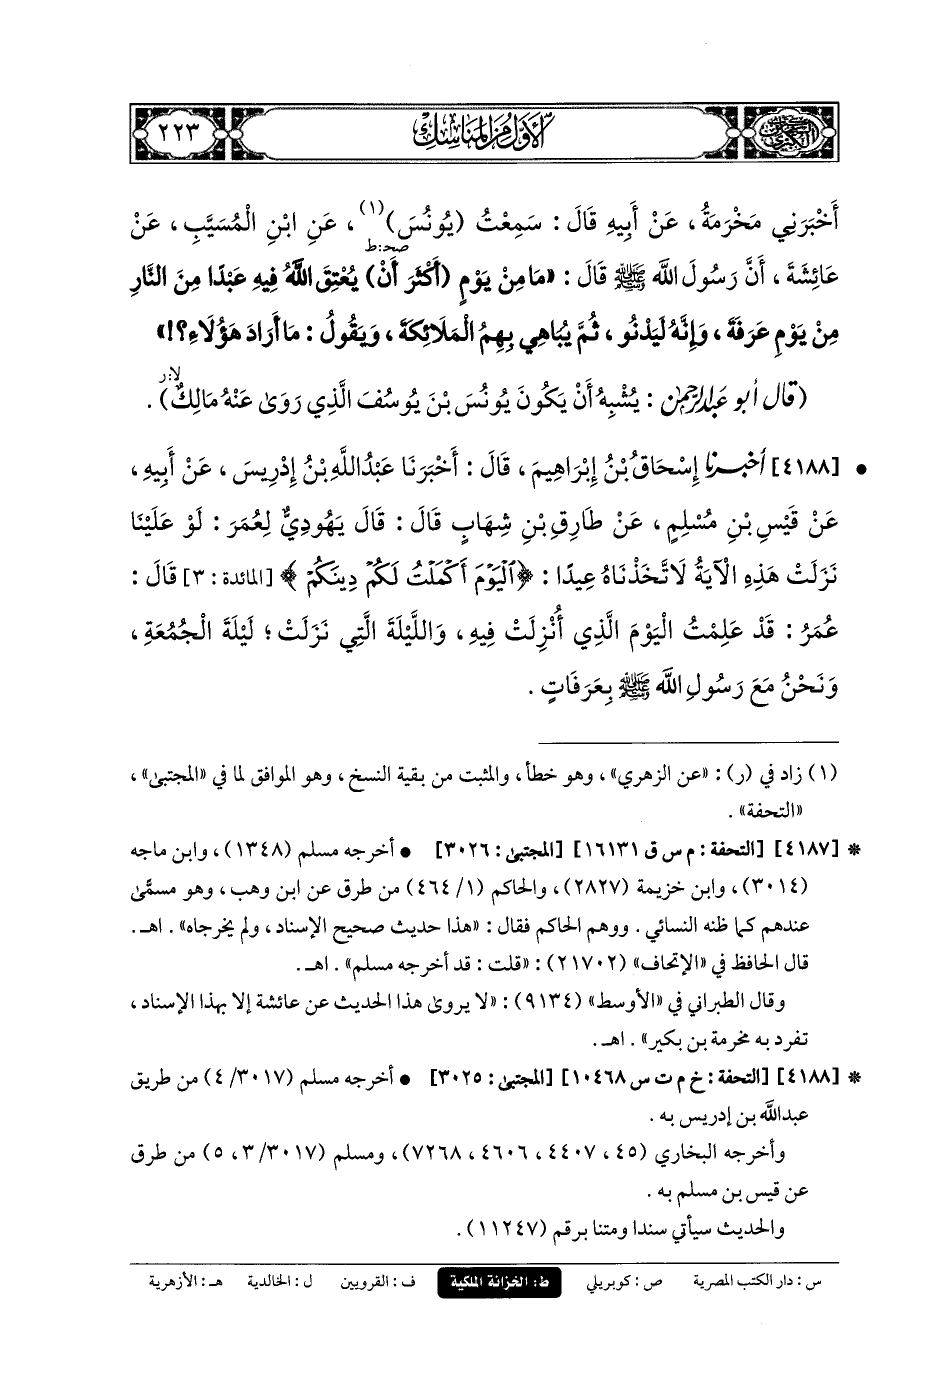 الأول من المناسك ٢٢٣
أَخْبَرَنِي مَخْرَمَةُ، عَنْ أَبِيهِ قَالَ: سَمِعْتُ (يُونُسَ)(١)، عَنِ ابْنِ الْمُسَيَّبِ، عَنْ
صحـ:ط
عَائِشَةَ، أَنَّ رَسُولَ اللَّه ﷺ قَالَ: «مَا مِنْ يَوْمٍ (أَكْثَرَ أَنْ) يُعْتِقَ اللَّهُ فِيهِ عَبْدًا مِنَ النَّارِ
مِنْ يَوْمِ عَرَفَةَ، وَإِنَّهُ لَيَدْنُو، ثُمَّ يُبَاهِي بِهِمُ الْمَلَائِكَةَ، وَيَقُولُ: مَا أَرَادَ هَؤُلَاءِ؟!»
لا:ر
(قال أبو عبدالرحمن: يُشْبِهُ أَنْ يَكُونَ يُونُسَ بْنَ يُوسُفَ الَّذِي رَوَىٰ عَنْهُ مَالِكٌ).
• [٤١٨٨] أخبرنا إِسْحَاقُ بْنُ إِبْرَاهِيمَ، قَالَ: أَخْبَرَنَا عَبْدُاللَّهِ بْنُ إِدْرِيسَ، عَنْ أَبِيهِ،
عَنْ قَيْسِ بْنِ مُسْلِمٍ، عَنْ طَارِقِ بْنِ شِهَابٍ قَالَ: قَالَ يَهُودِيٌّ لِعُمَرَ: لَوْ عَلَيْنَا
نَزَلَتْ هَذِهِ الْآيَةُ لَاتَّخَذْنَاهُ عِيدًا: ﴿ٱلْيَوْمَ أَكْمَلْتُ لَكُمْ دِينَكُمْ﴾ [المائدة: ٣] قَالَ:
عُمَرُ: قَدْ عَلِمْتُ الْيَوْمَ الَّذِي أُنْزِلَتْ فِيهِ، وَاللَّيْلَةَ الَّتِي نَزَلَتْ؛ لَيْلَةَ الْجُمُعَةِ،
وَنَحْنُ مَعَ رَسُولِ اللَّه ﷺ بِعَرَفَاتٍ.
(١) زاد في (ر): «عن الزهري»، وهو خطأ، والمثبت من بقية النسخ، وهو الموافق لما في «المجتبىٰ»،
«التحفة».
* [٤١٨٧] [التحفة: م س ق ١٦١٣١] [المجتبىٰ: ٣٠٢٦] • أخرجه مسلم (١٣٤٨)، وابن ماجه
(٣٠١٤)، وابن خزيمة (٢٨٢٧)، والحاكم (١/ ٤٦٤) من طرق عن ابن وهب، وهو مسمًّىٰ
عندهم كما ظنه النسائي. ووهم الحاكم فقال: «هذا حديث صحيح الإسناد، ولم يخرجاه». اهـ.
قال الحافظ في «الإتحاف» (٢١٧٠٢): «قلت: قد أخرجه مسلم». اهـ.
وقال الطبراني في «الأوسط» (٩١٣٤): «لا يروىٰ هذا الحديث عن عائشة إلا بهذا الإسناد،
تفرد به مخرمة بن بكير». اهـ.
* [٤١٨٨] [التحفة: خ م ت س ١٠٤٦٨] [المجتبىٰ: ٣٠٢٥] • أخرجه مسلم (٣٠١٧/ ٤) من طريق
عبدالله بن إدريس به.
وأخرجه البخاري (٤٥، ٤٤٠٧، ٤٦٠٦، ٧٢٦٨)، ومسلم (٣٠١٧/ ٣، ٥) من طرق
عن قيس بن مسلم به.
والحديث سيأتي سندا ومتنا برقم (١١٢٤٧).
س: دار الكتب المصرية ص: كوبريلي ط: الخزانة الملكية ف: القرويين ل: الخالدية هـ: الأزهرية